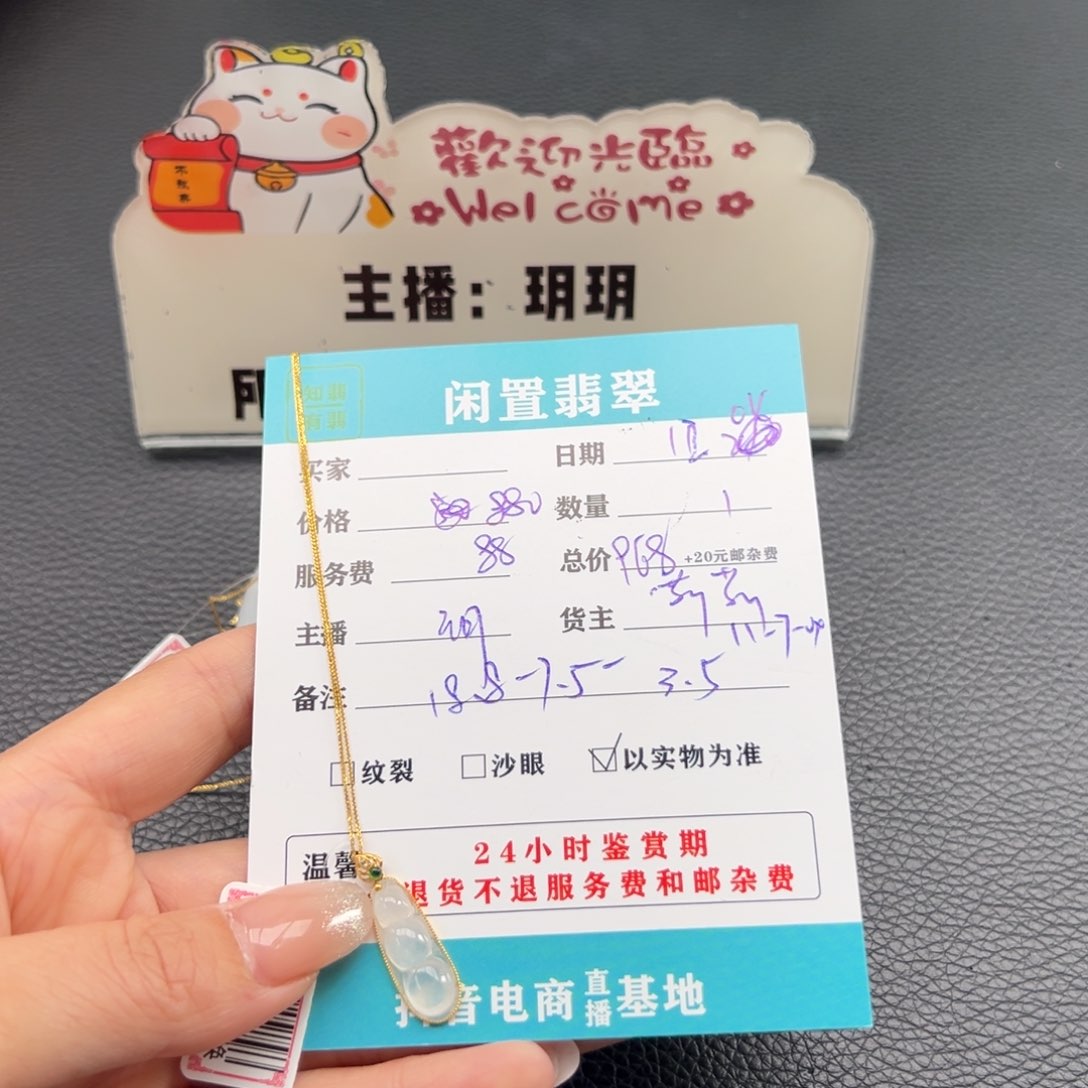 歡迎光臨
Welcome
主播：玥玥
知翡
有翡
闲置翡翠
买家
日期 12
价格 880
数量 1
服务费 88
总价 968 +20元邮杂费
主播 玥
货主
备注 18.8-7.5-3.5
纹裂 沙眼 以实物为准
24小时鉴赏期
温馨
退货不退服务费和邮杂费
抖音电商直播基地